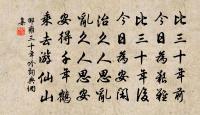 比三十年前
今日為艱難
比三十年後
今日為安閑
治久人思亂
亂久人思安
安得千年鶴
乘去游仙山
邵雍三十年吟詞典網
集